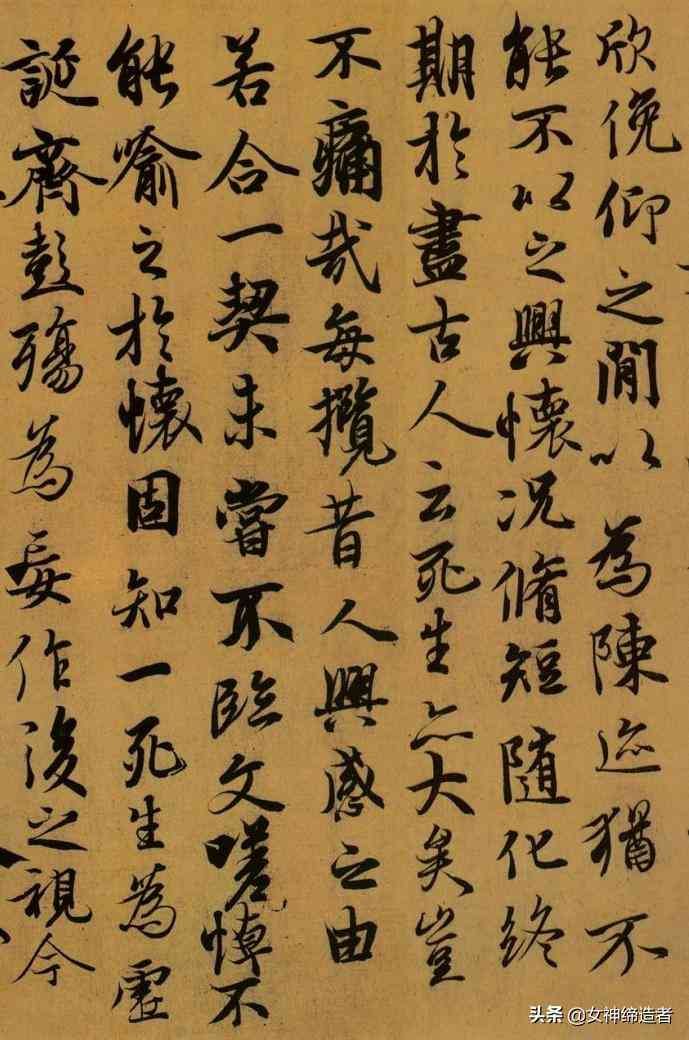 欣俛仰之閒以為陳迹猶不
能不以之興懷況脩短隨化終
期於盡古人云死生亦大矣豈
不痛哉每攬昔人興感之由
若合一契未嘗不臨文嗟悼不
能喻之於懷固知一死生為虛
誕齊彭殤為妄作後之視今
头条 @女神缔造者